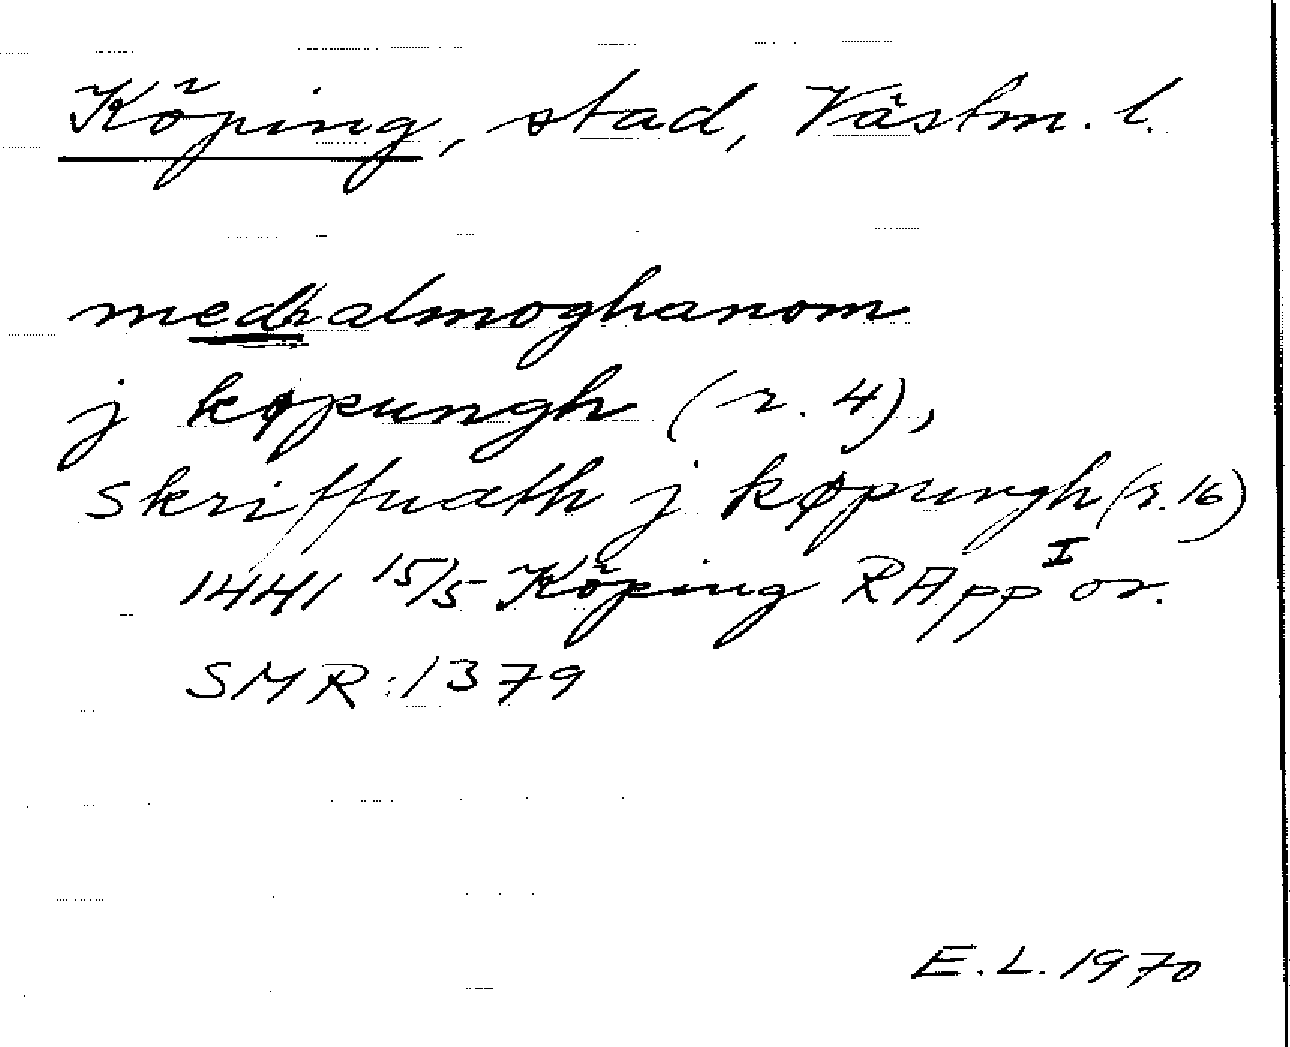 Köping, stad, Västm. l.
medh almoghanom
j køpungh (r. 4),
skriffuath j køpungh (r. 16)
1441 15/5 Köping RApp I or.
SMR: 1379
E.L. 1970